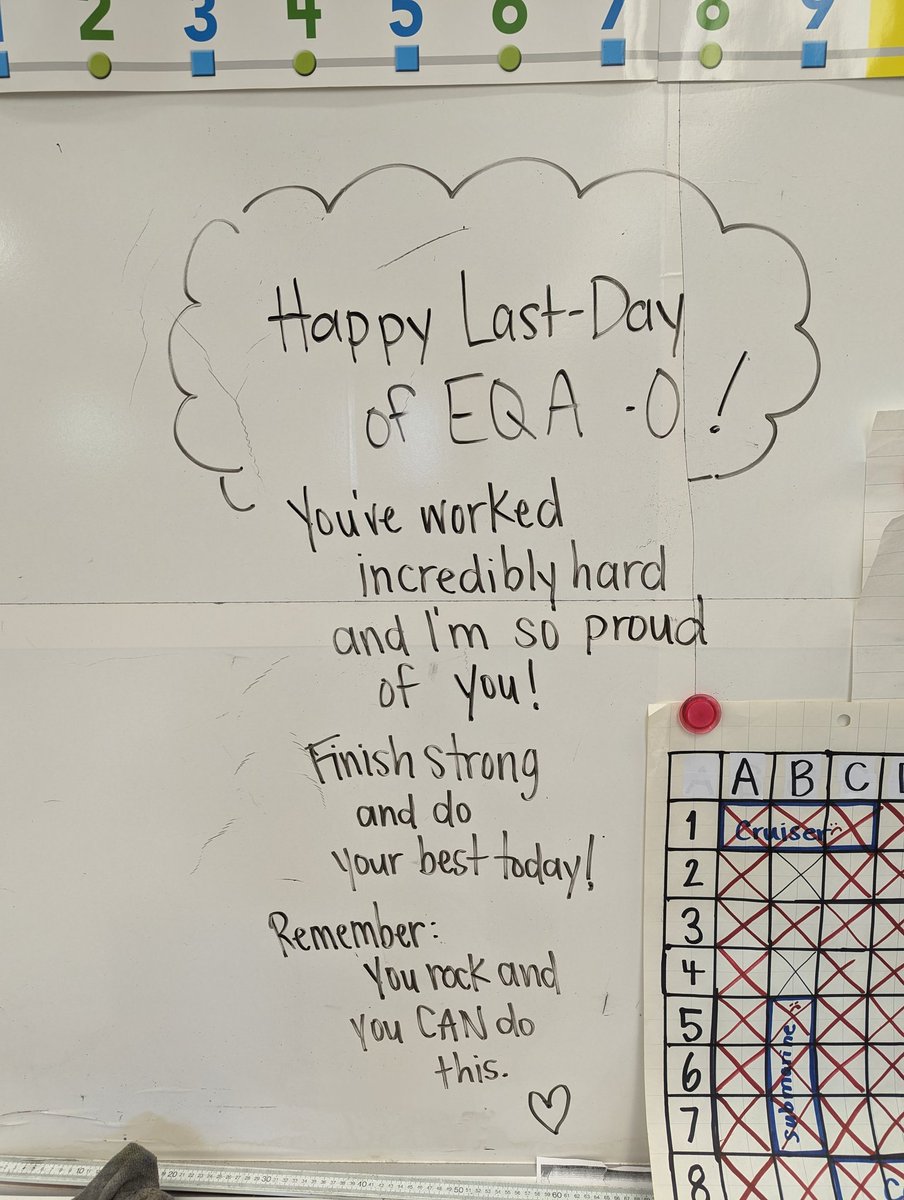 1 2 3 4 5 6 7 8 9
Happy Last-Day
of EQA -O!
You've worked
incredibly hard
and I'm so proud
of you!
Finish strong
and do
your best today!
Remember:
You rock and
you CAN do
this.
A B C D
1 Cruiser
2
3
4
5
6
7
submarine
8 C
10 20 30 40 50 60